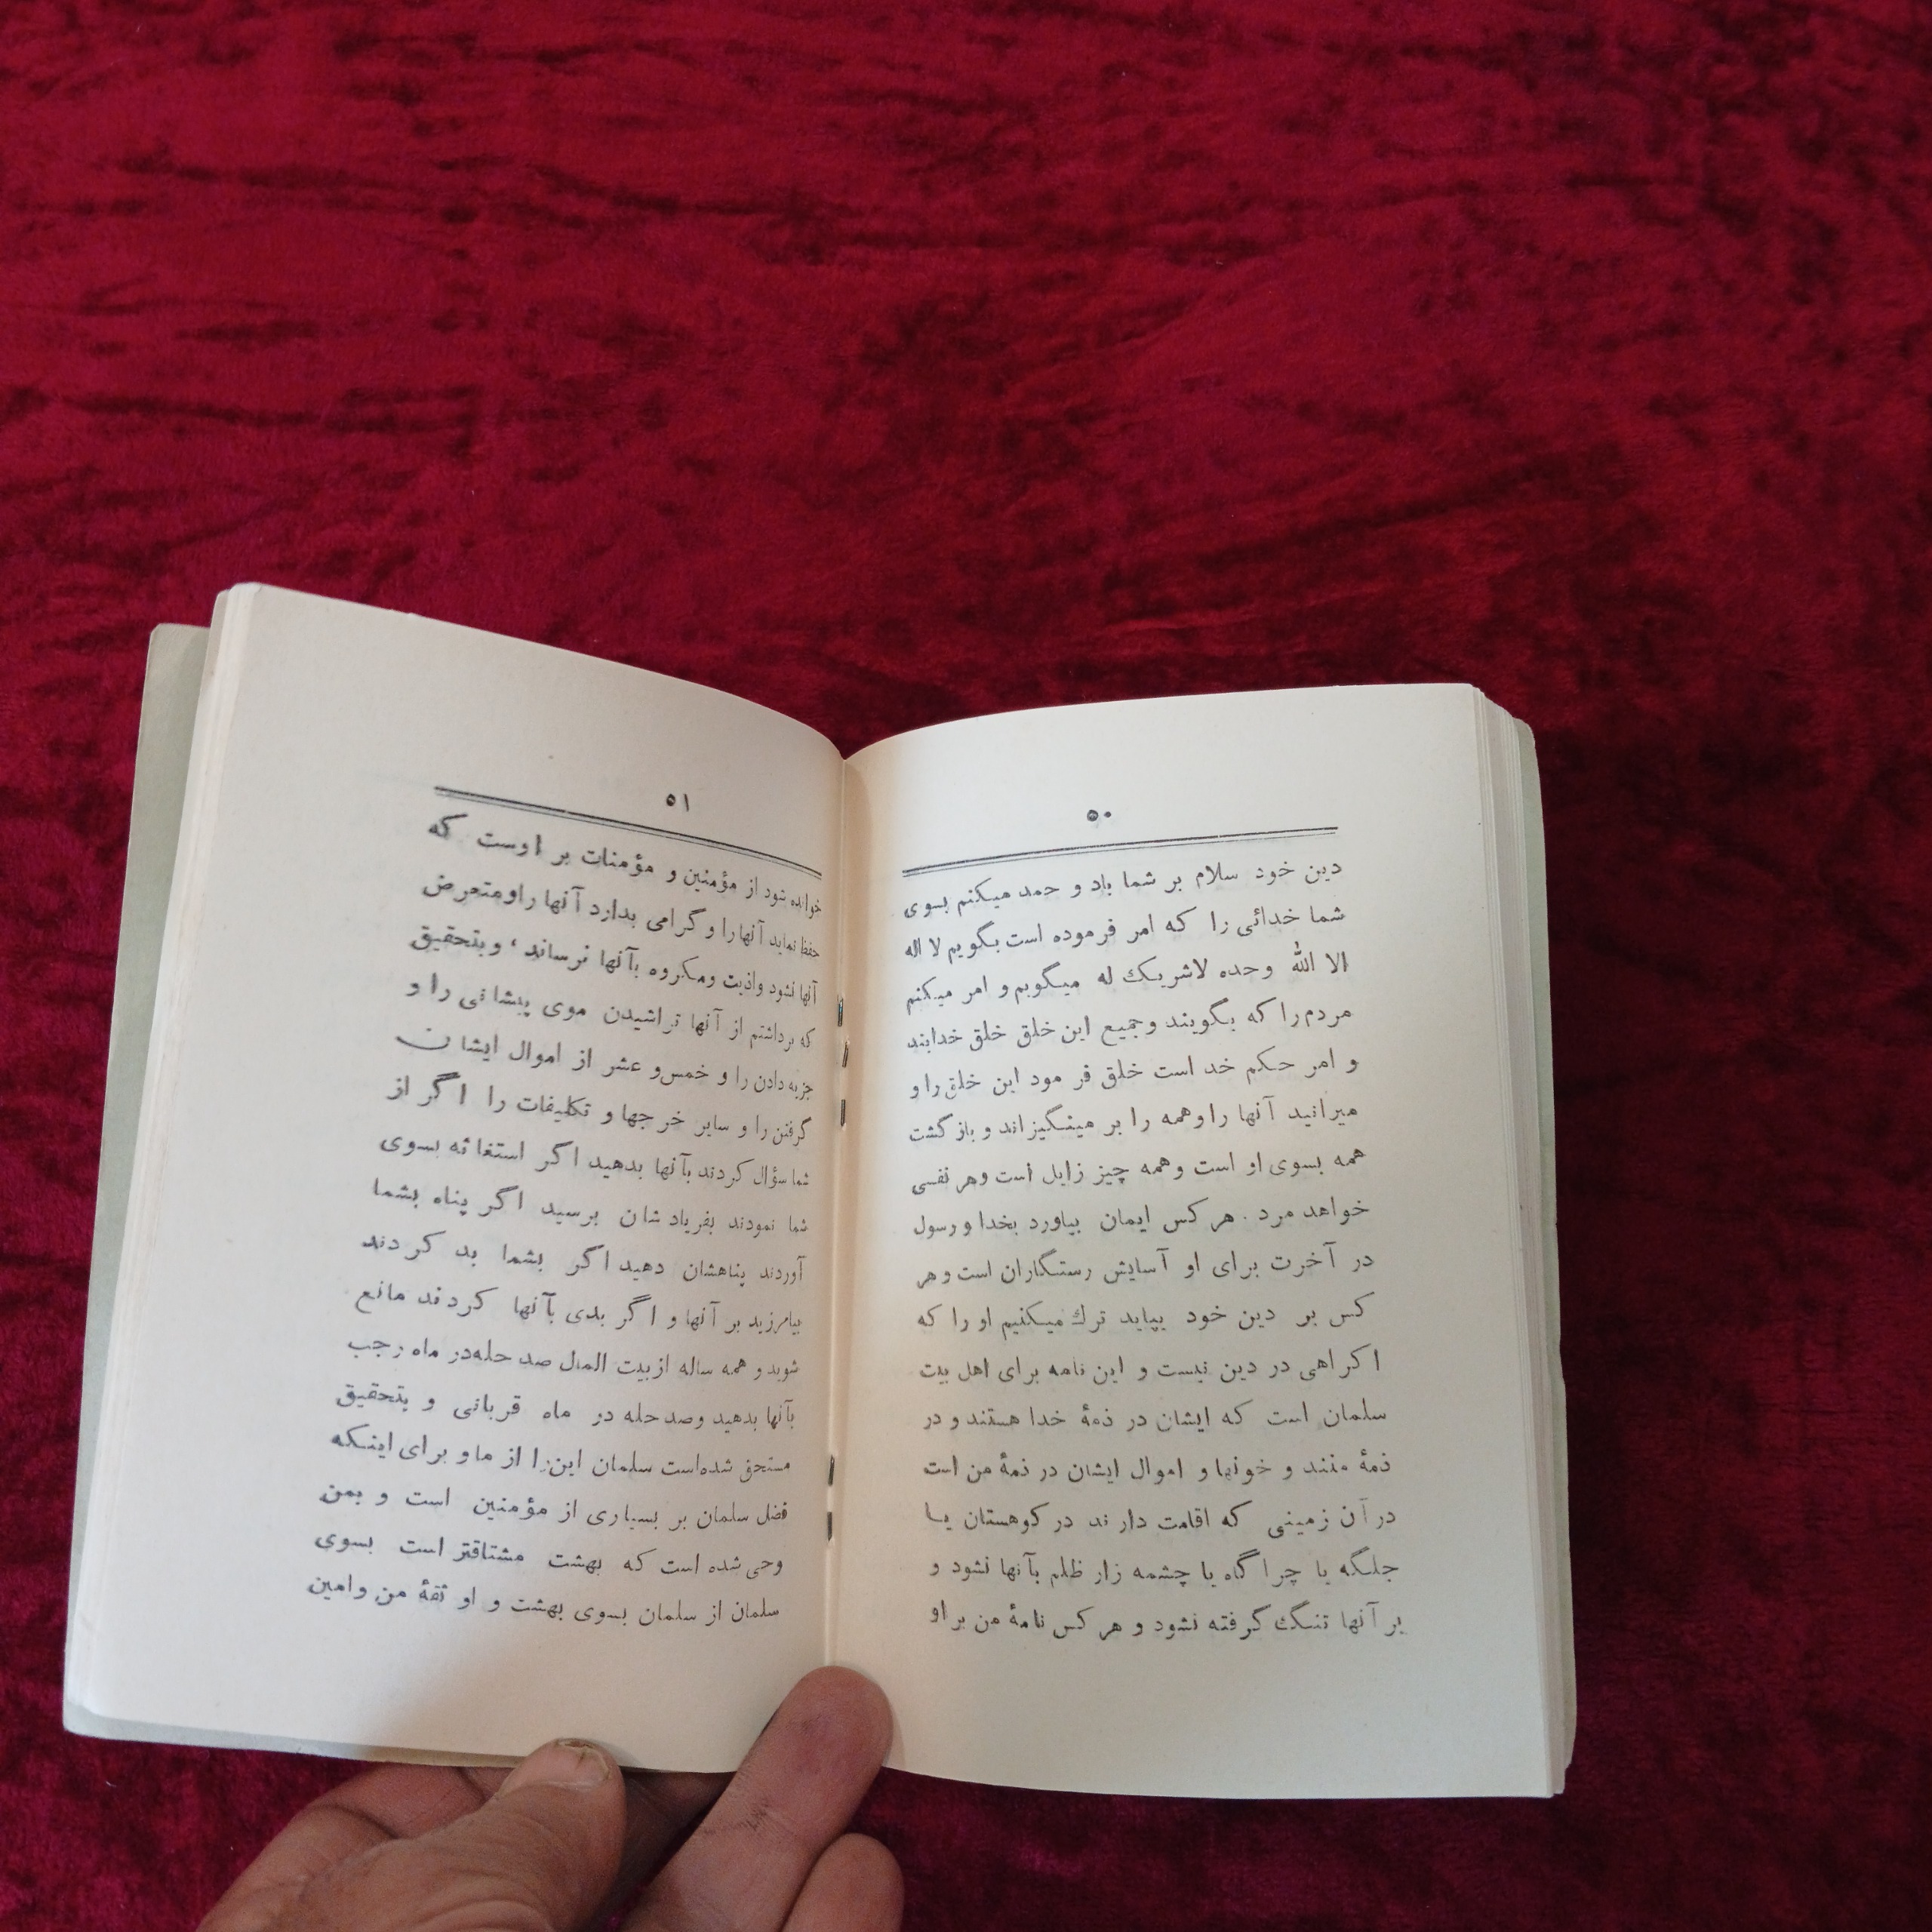 ۵۰
دین خود سلام بر شما باد و حمد میکنم بسوی
شما خدائی را که امر فرموده است بگویم لا اله
الا الله وحده لاشریک له میگویم و امر میکنم
مردم را که بگویند و جمیع این خلق خلق خدایند
و امر حکم خد است خلق فر مود این خلق را و
میرانید آنها را وهمه را بر مینگیزاند و باز گشت
همه بسوی او است وهمه چیز زایل است وهر نفسی
خواهد مرد . هر کس ایمان بیاورد بخدا و رسول
در آخرت برای او آسایش رستگاران است و هر
کس بر دین خود بپاید ترك میکنیم او را که
اکراهی در دین نیست و این نامه برای اهل بیت
سلمان است که ایشان در ذمهٔ خدا هستند و در
ذمهٔ منند و خونها و اموال ایشان در ذمهٔ من است
در آن زمینی که اقامت دارند در کوهستان یا
جلگه یا چرا گاه یا چشمه زار ظلم بآنها نشود و
بر آنها تنگ گرفته نشود و هر کس نامهٔ من بر او
۵۱
خوانده شود از مؤمنین و مؤمنات بر اوست که
حفظ نماید آنها را و گرامی بدارد آنها را ومتعرض
آنها نشود واذیت ومکروه بآنها نرساند ، و بتحقیق
که برداشتم از آنها تراشیدن موی پیشانی را و
جزیه دادن را و خمس و عشر از اموال ایشان
گرفتن را و سایر خرجها و تکلیفات را اگر از
شما سؤال کردند بآنها بدهید اگر استغاثه بسوی
شما نمودند بفریاد شان برسید اگر پناه بشما
آوردند پناهشان دهید اگر بشما بد کردند
بیامرزید بر آنها و اگر بدی بآنها کردند مانع
شوید و همه ساله از بیت المال صد حله در ماه رجب
بآنها بدهید وصد حله در ماه قربانی و بتحقیق
مستحق شده است سلمان این را از ما و برای اینکه
فضل سلمان بر بسیاری از مؤمنین است و بمن
وحی شده است که بهشت مشتاقتر است بسوی
سلمان از سلمان بسوی بهشت و او ثقهٔ من وامین